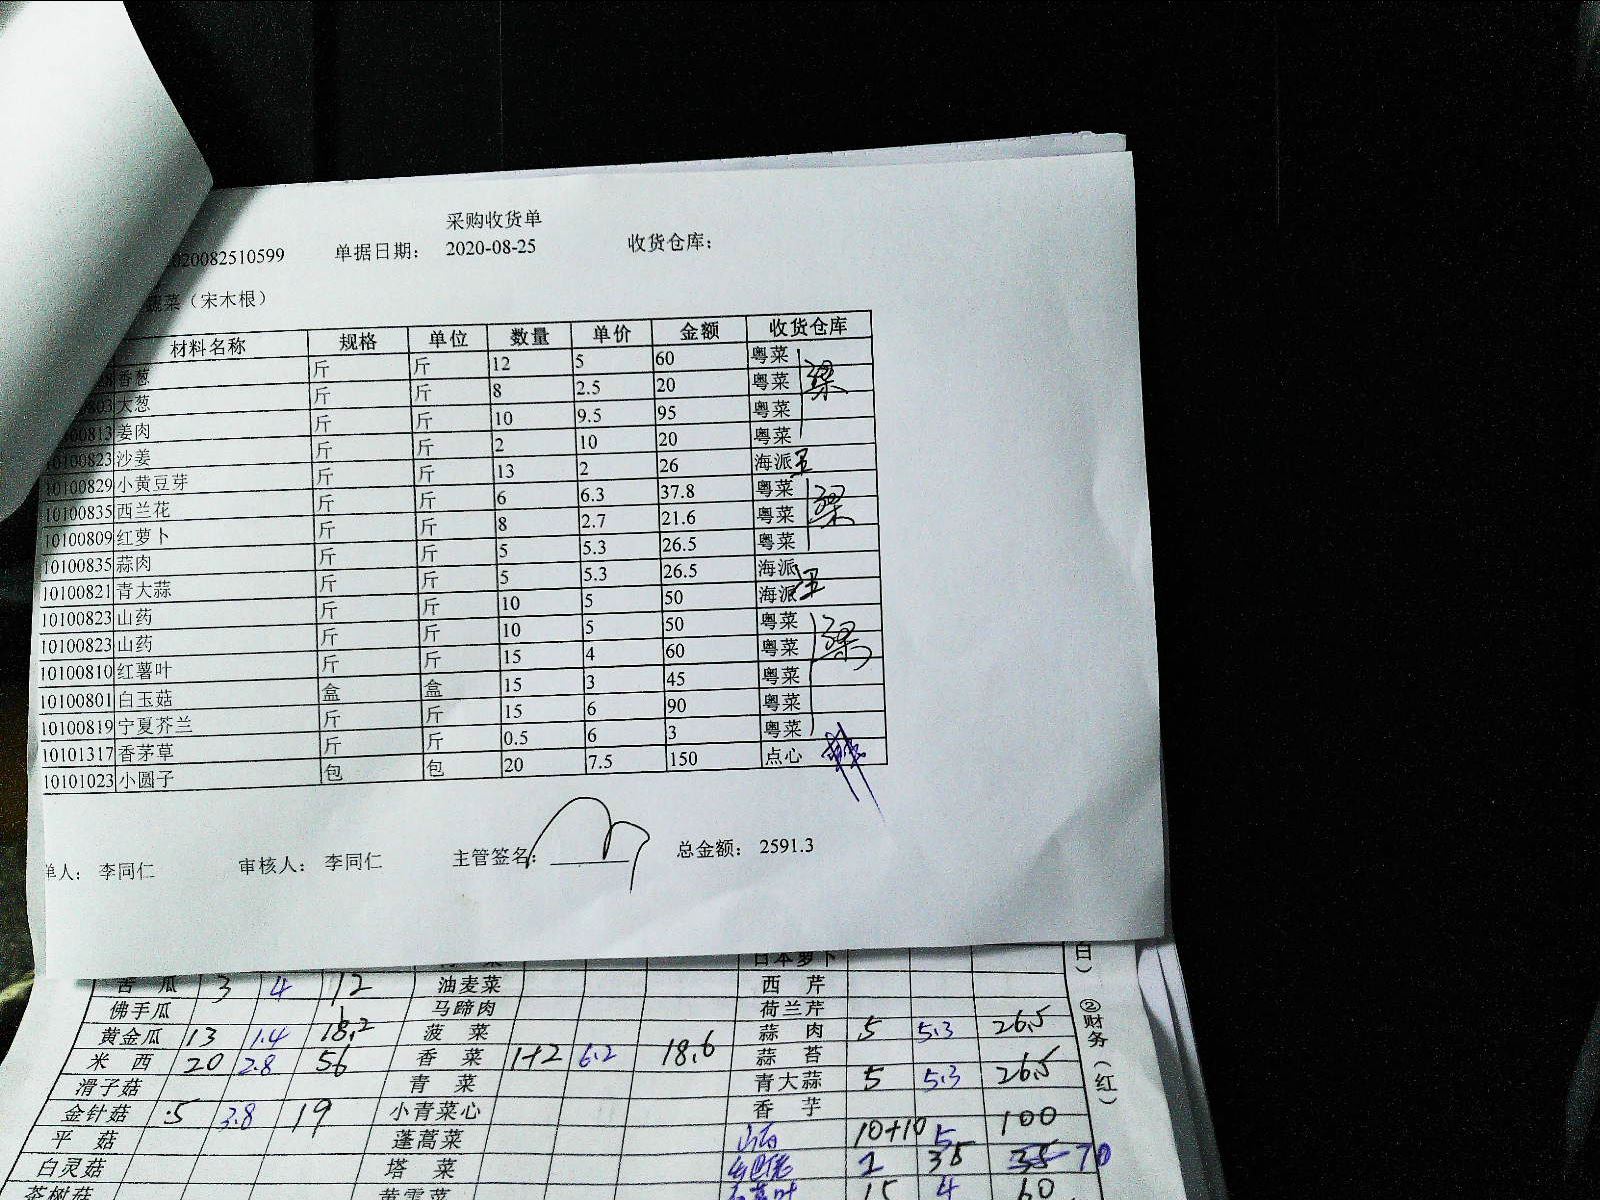 采购收货单
020082510599 单据日期： 2020-08-25 收货仓库：
蔬菜（宋木根）
材料名称 规格 单位 数量 单价 金额 收货仓库
香葱 斤 斤 12 5 60 粤菜
803 大葱 斤 斤 8 2.5 20 粤菜 梁
00813 姜肉 斤 斤 10 9.5 95 粤菜
10100823 沙姜 斤 斤 2 10 20 粤菜
10100829 小黄豆芽 斤 斤 13 2 26 海派 王
10100835 西兰花 斤 斤 6 6.3 37.8 粤菜
10100809 红萝卜 斤 斤 8 2.7 21.6 粤菜 梁
10100835 蒜肉 斤 斤 5 5.3 26.5 粤菜
10100821 青大蒜 斤 斤 5 5.3 26.5 海派
10100823 山药 斤 斤 10 5 50 海派 王
10100823 山药 斤 斤 10 5 50 粤菜
10100810 红薯叶 斤 斤 15 4 60 粤菜 梁
10100801 白玉菇 盒 盒 15 3 45 粤菜
10100819 宁夏芥兰 斤 斤 15 6 90 粤菜
10101317 香茅草 斤 斤 0.5 6 3 粤菜
10101023 小圆子 包 包 20 7.5 150 点心
单人： 李同仁 审核人： 李同仁 主管签名： 总金额： 2591.3
日本萝卜
苦瓜 3 4 12 油麦菜 西芹
佛手瓜 马蹄肉 荷兰芹
黄金瓜 13 1.4 18.2 菠菜 蒜肉 5 5.3 26.5
米西 20 2.8 56 香菜 1+2 6.2 18.6 蒜苔
滑子菇 青菜 青大蒜 5 5.3 26.5
金针菇 5 3.8 19 小青菜心 香芋
平菇 蓬蒿菜 山药 10+10 5 100
白灵菇 塔菜 2 35 70
茶树菇 黄雪菜 15 4 60
白）
②财务（红）